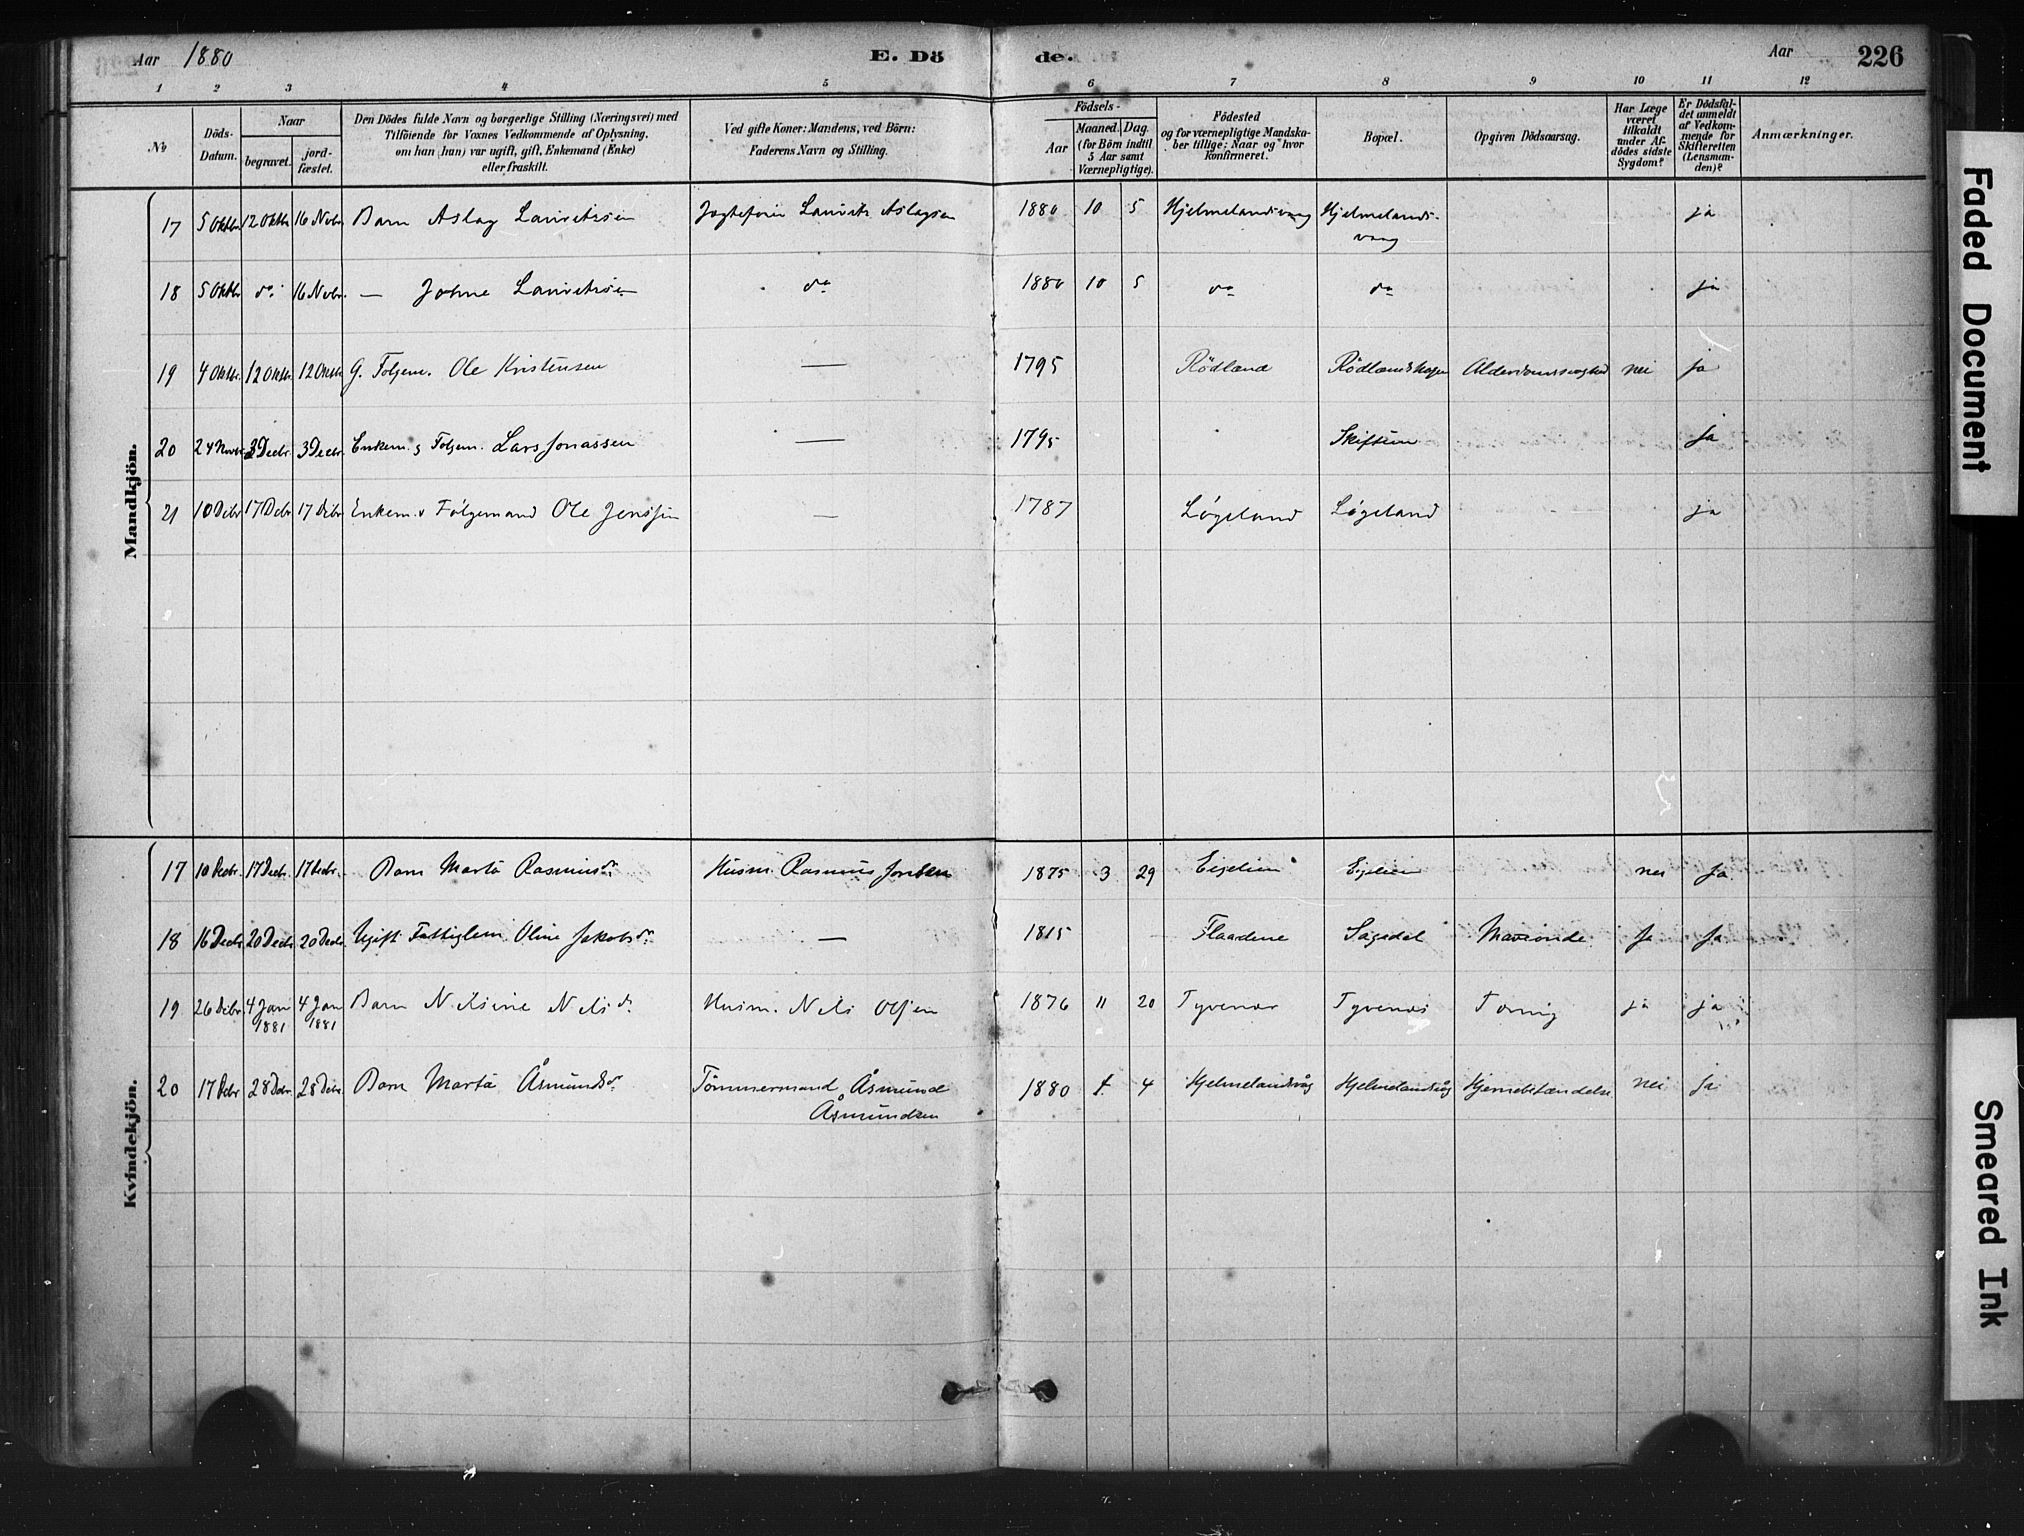 Aar 1880 E. Dö de. Aar 226
1 2 3 4 5 6 7 8 9 10 11 12
No
Döds-Datum.
Naar
begravet.
jord-fæstet.
Den Dödes fulde Navn og borgerlige Stilling (Næringsvei) med
Tilföiende for Voxnes Vedkommende af Oplysning,
om han (hun) var ugift, gift, Enkemand (Enke)
eller fraskilt.
Ved gifte Koner: Mandens, ved Börn:
Faderens Navn og Stilling.
Födsels-
Aar
Maaned. Dag.
(for Börn indtil
5 Aar samt
Værnepligtige).
Födested
og for værnepligtige Mandska-
ber tillige: Naar og hvor
konfirmeret.
Bopæl.
Opgiven Dödsaarsag.
Har Læge
været
tilkaldt
under Af-
dödes sidste
Sygdom?
Er Dödsfal-
det anmeldt
af Vedkom-
mende for
Skifteretten
(Lensman-
den)?
Anmærkninger.
Mandkjön.
17 5 Oktbr 12 Oktbr 16 Novbr Barn Aslag Lauritsen Jægtefører Laurits Aslagsen 1880 10 5 Hjelmelandsvaag Hjelmelands-
vaag ja
18 5 Oktbr do 16 Novbr. — Johne Lauritsen do 1880 10 5 do do ja
19 4 Oktbr. 12 Oktbr. 12 Oktbr. G. Folgem. Ole Kristensen — 1795 Rödland Rödlandshagen Alderdomssvaghed nei ja
20 24 Novbr. 3 Decbr. 3 Decbr. Enkem. & Folgem. Lars Jonassen — 1795 Skiftun Ja
21 10 Debr 17 Debr 17 Debr Enkem. & Følgemand Ole Jensen — 1787 Løgeland Løgeland ja
Kvindekjön.
17 10 Decbr. 17 Decbr. 17 Decbr. Barn Marta Rasmusdr. Husm. Rasmus 1875 3 29 Eigelien Eigelien nei Ja
18 16 Decbr 20 Decbr 20 Decbr. Ugift Fattiglem Oline Jakobsdr. — 1815 Flaadene Sagedal Maveonde Ja Ja
19 26 Debr 4 Jan 4 Jan Barn Nilsine Nilsdr. Husm. Nils Olsen 1876 11 20 Tyvenæs Tyvenæs Tæring ja ja
1881 1881
20 17 Debr 28 Debr. 28 Debr. Barn Marta Åsmundsdr. Tømmermand Åsmund 1880 4 Hjelmelandsvåg Hjelmelandsvåg Hjernebetændelse nei ja
Åsmundsen
Faded Document
Smeared Ink